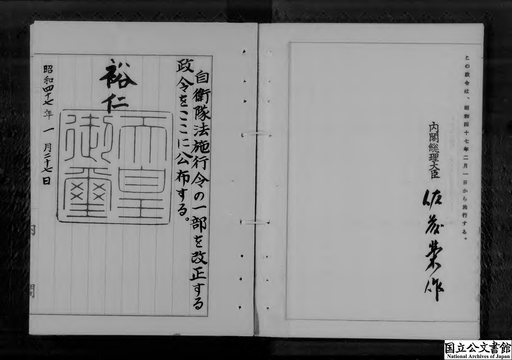 自衛隊法施行令の一部を改正する
政令をここに公布する。
裕仁
天皇
御璽
昭和四十七年一月二十七日
この政令は、昭和四十七年二月一日から施行する。
内閣総理大臣
佐藤榮作
国立公文書館
National Archives of Japan